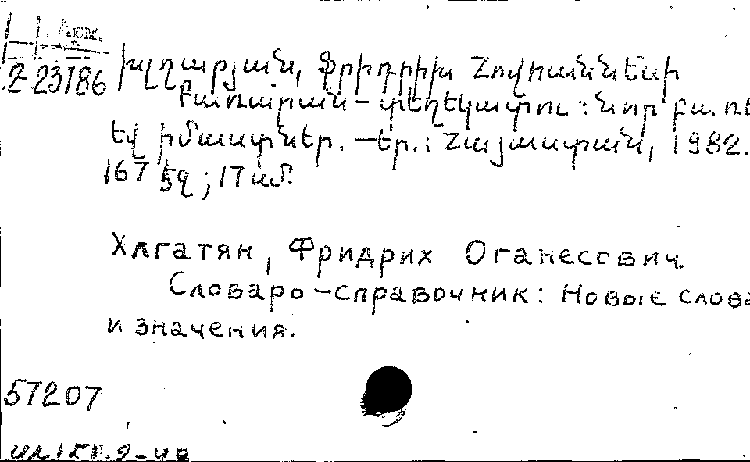 2 23186 խլղաթյան, Ֆրիդրիխ Հովհաննեսի
Բառարան – տեղեկատու : նոր բառե
եվ իմաստներ. – Եր.: Հայաստան, 1982.
167 էջ ; 17 սմ.
Хлгатян, Фридрих Оганесович.
Словаро-справочник: Новые слова
и значения.
57207